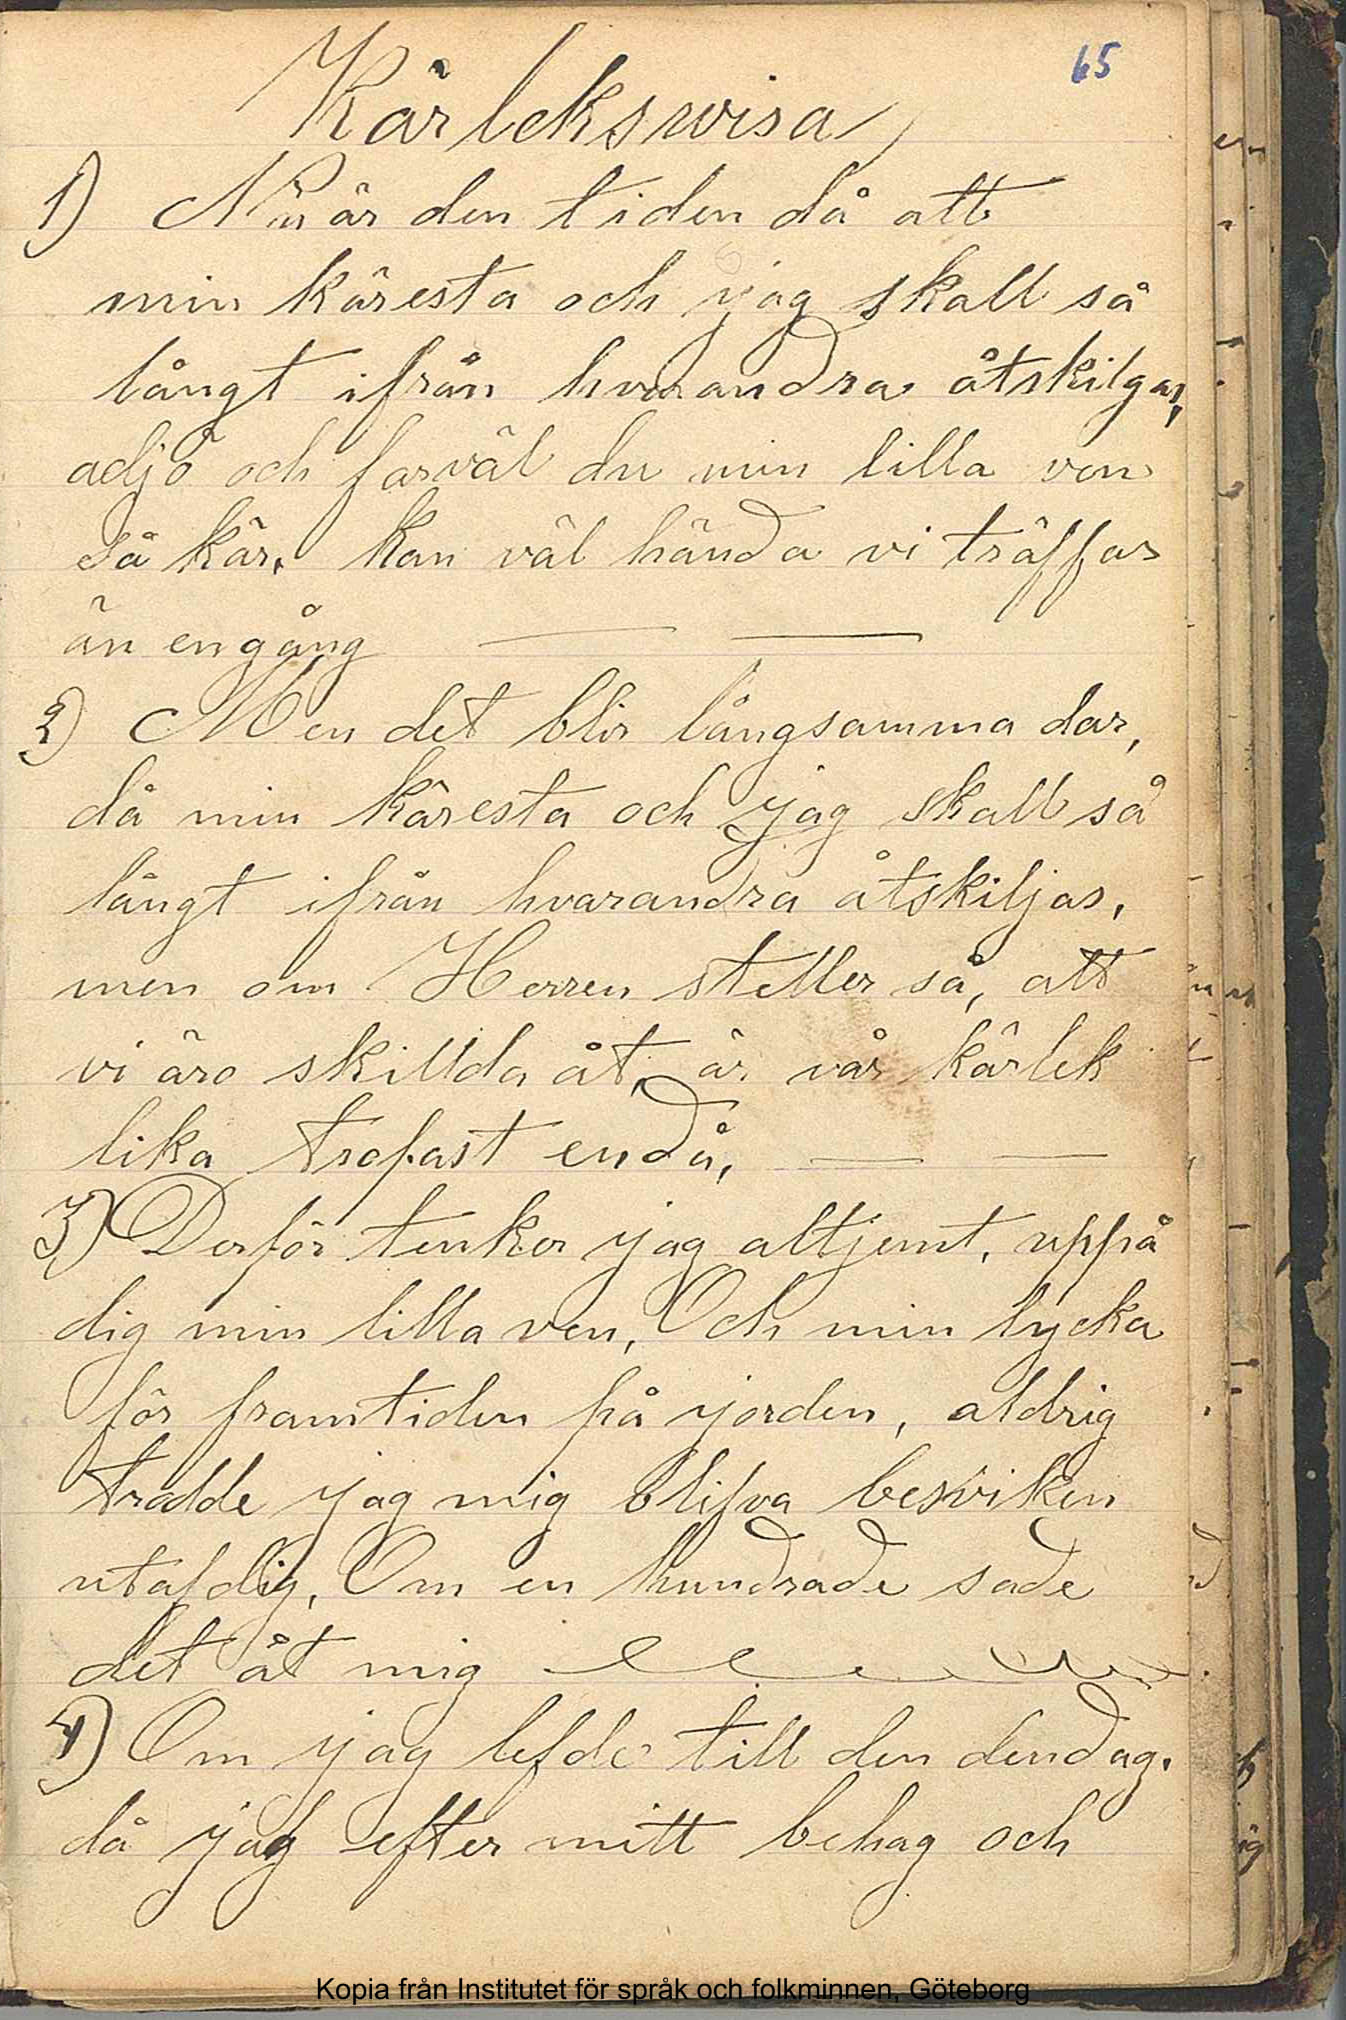 65
Kärlekswisa
1) Nu är den tiden då att
min käresta och jag skall så
långt ifrån hvarandra åtskilgas,
adjö och farväl du min lilla ven
så kär, kan väl hända vi träffas
än engång
2) Men det blir långsamma dar,
då min käresta och jag skall så
långt ifrån hvarandra åtskiljas,
men om Herren steller så, att
vi äro skillda åt, är vår kärlek
lika trofast endå,
3) Derför tenker jag altjemt, uppå
dig min lilla ven, Och min lycka
för framtiden på jorden, aldrig
trodde jag mig blifva besviken
utaf dig, Om en hundrade sade
det åt mig
4) Om jag lefde till den dendag,
då jag efter mitt behag och
Kopia från Institutet för språk och folkminnen, Göteborg